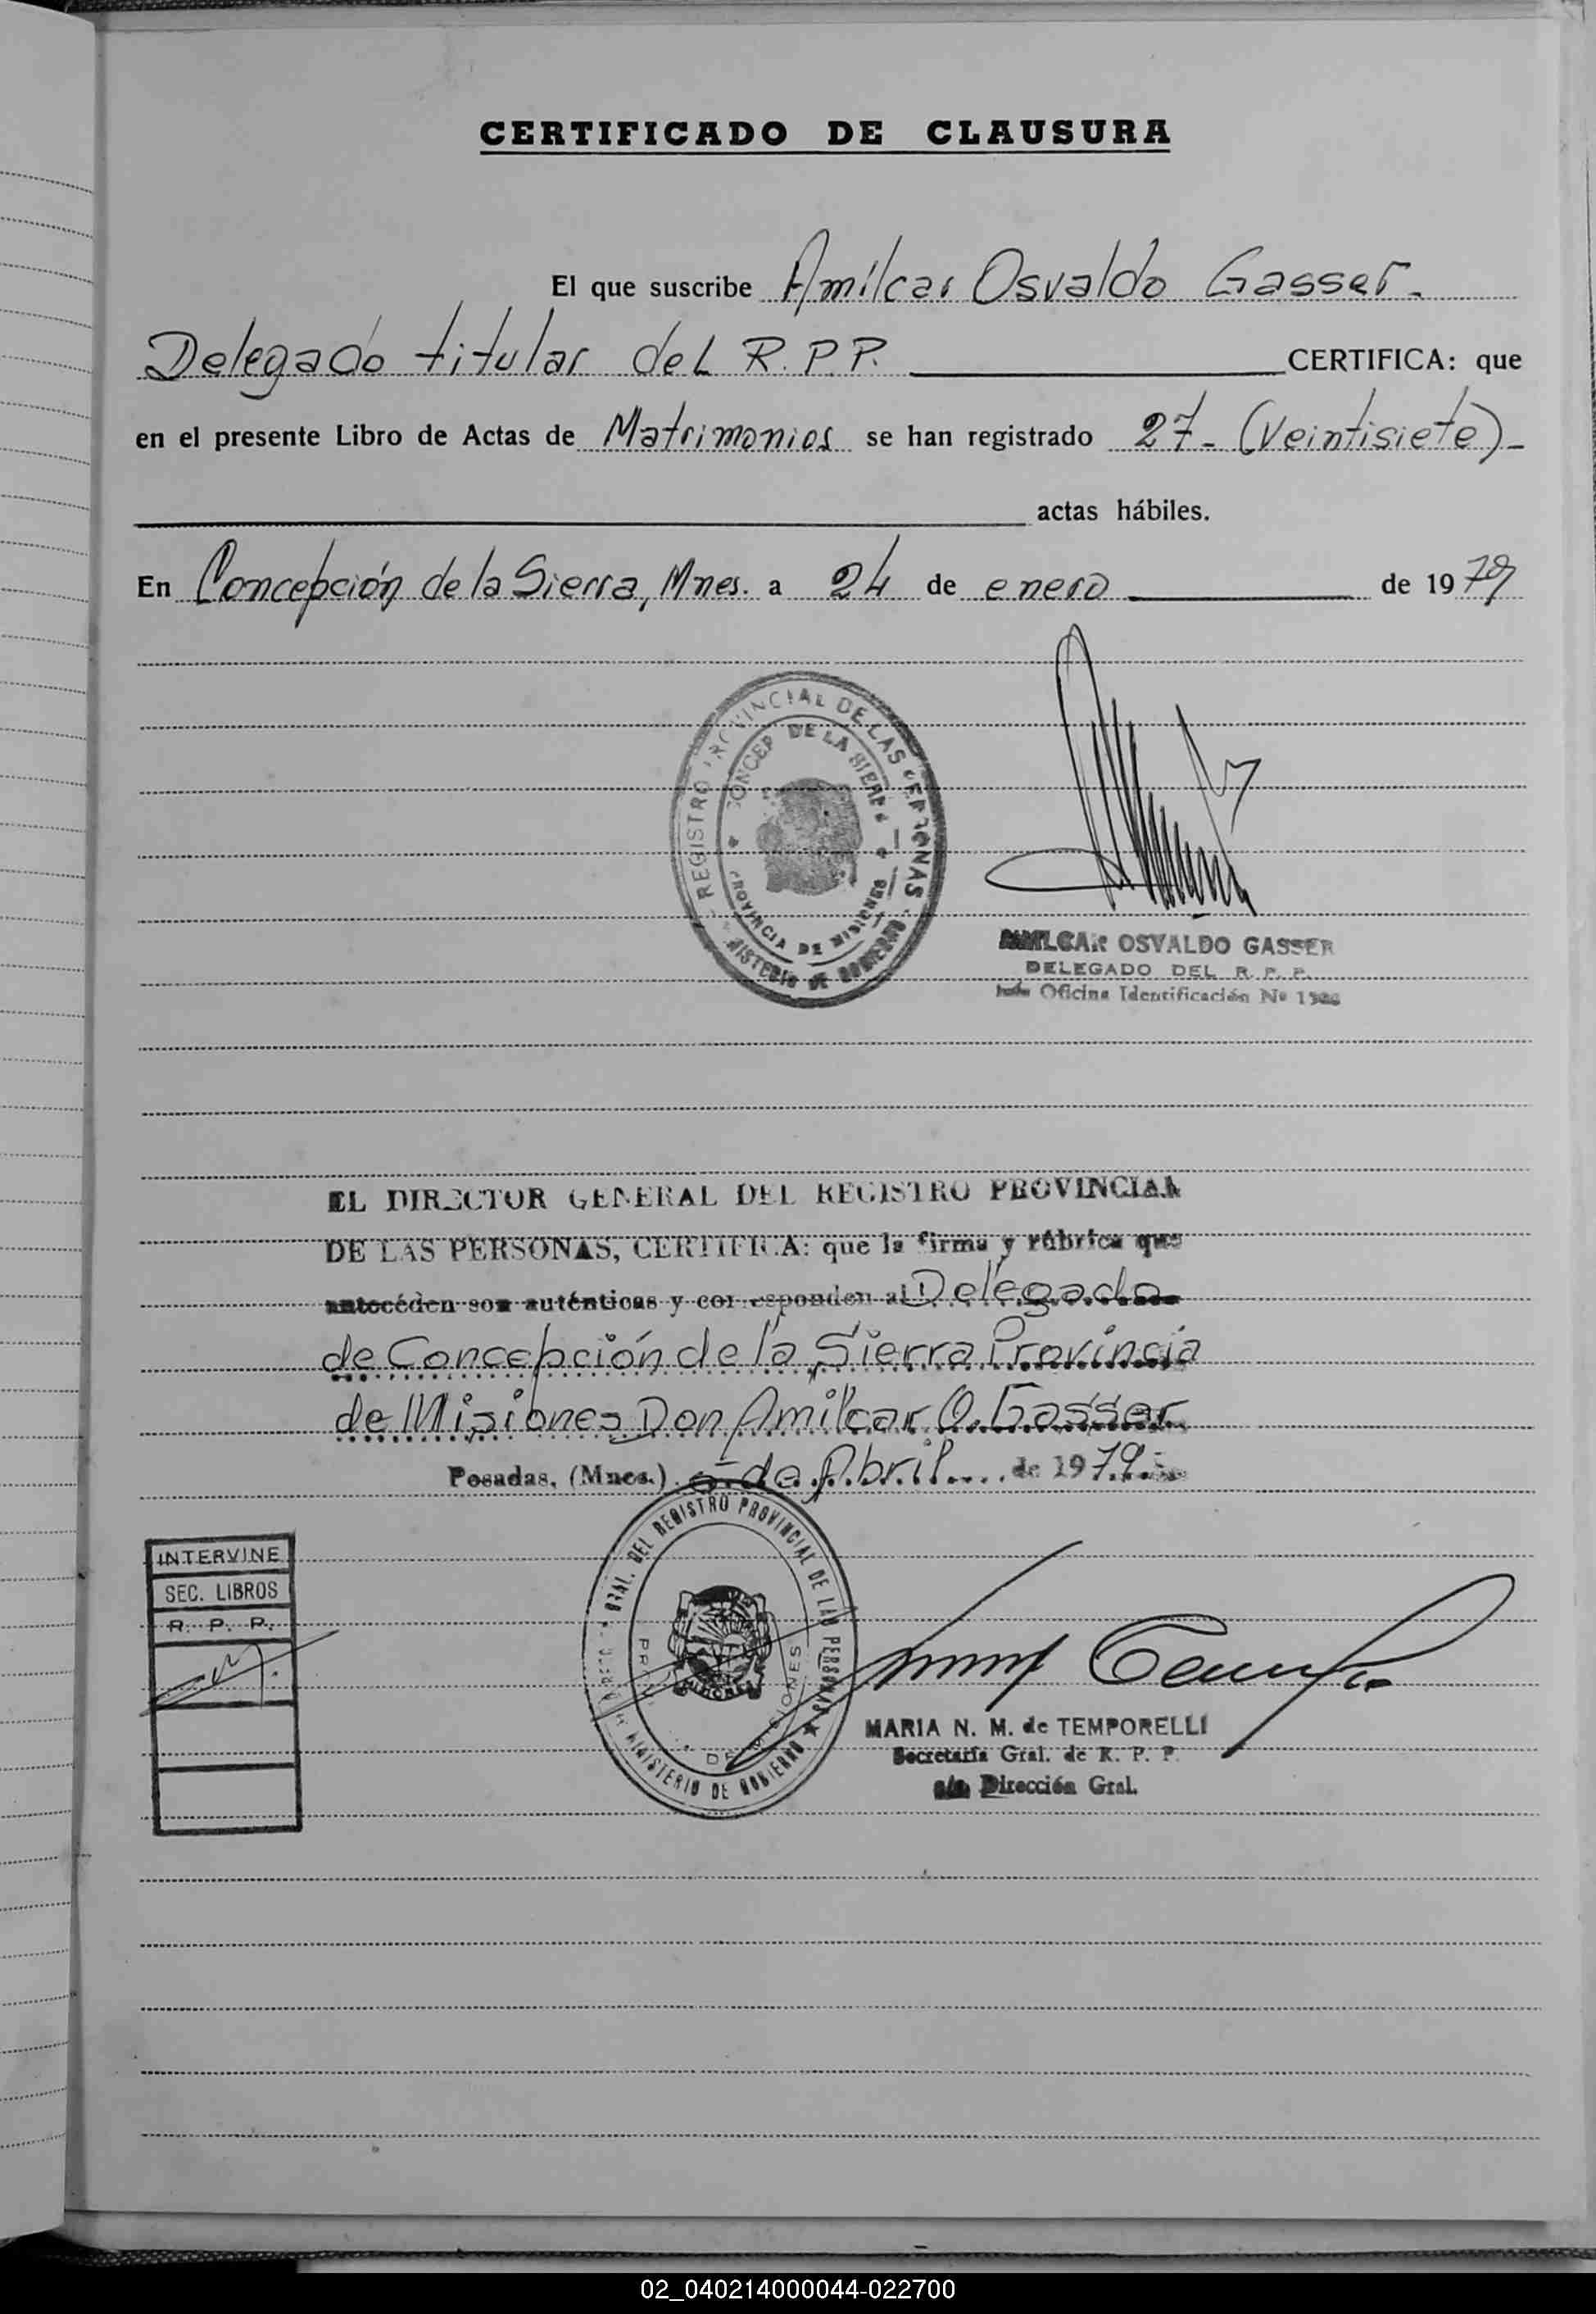 CERTIFICADO DE CLAUSURA
El que suscribe Amílcar Osvaldo Gasser.
Delegado titular del R.P.P. CERTIFICA: que
en el presente Libro de Actas de Matrimonios se han registrado 27- (Veintisiete)-
actas hábiles.
En Concepción de la Sierra, Mnes. a 24 de enero de 1979
REGISTRO PROVINCIAL DE LAS PERSONAS
MINISTERIO DE GOBIERNO
CONCEP DE LA SIERRA
PROVINCIA DE MISIONES
AMILCAR OSVALDO GASSER
DELEGADO DEL R. P. P.
Oficina Identificación Nº
EL DIRECTOR GENERAL DEL REGISTRO PROVINCIAL
DE LAS PERSONAS, CERTIFICA: que la firma y rúbrica que
antecéden son auténticas y corresponden al Delegado
de Concepción de la Sierra Provincia
de Misiones Don Amilcar O. Gasser
Posadas, (Mnes.) 5 de Abril de 1979
INTERVINE
SEC. LIBROS
R. P. P.
GRAL. DEL REGISTRO PROVINCIAL DE LAS PERSONAS
MINISTERIO DE GOBIERNO
DE MISIONES
MARIA N. M. de TEMPORELLI
Secretaria Gral. de R. P. P.
Dirección Gral.
02_040214000044-022700